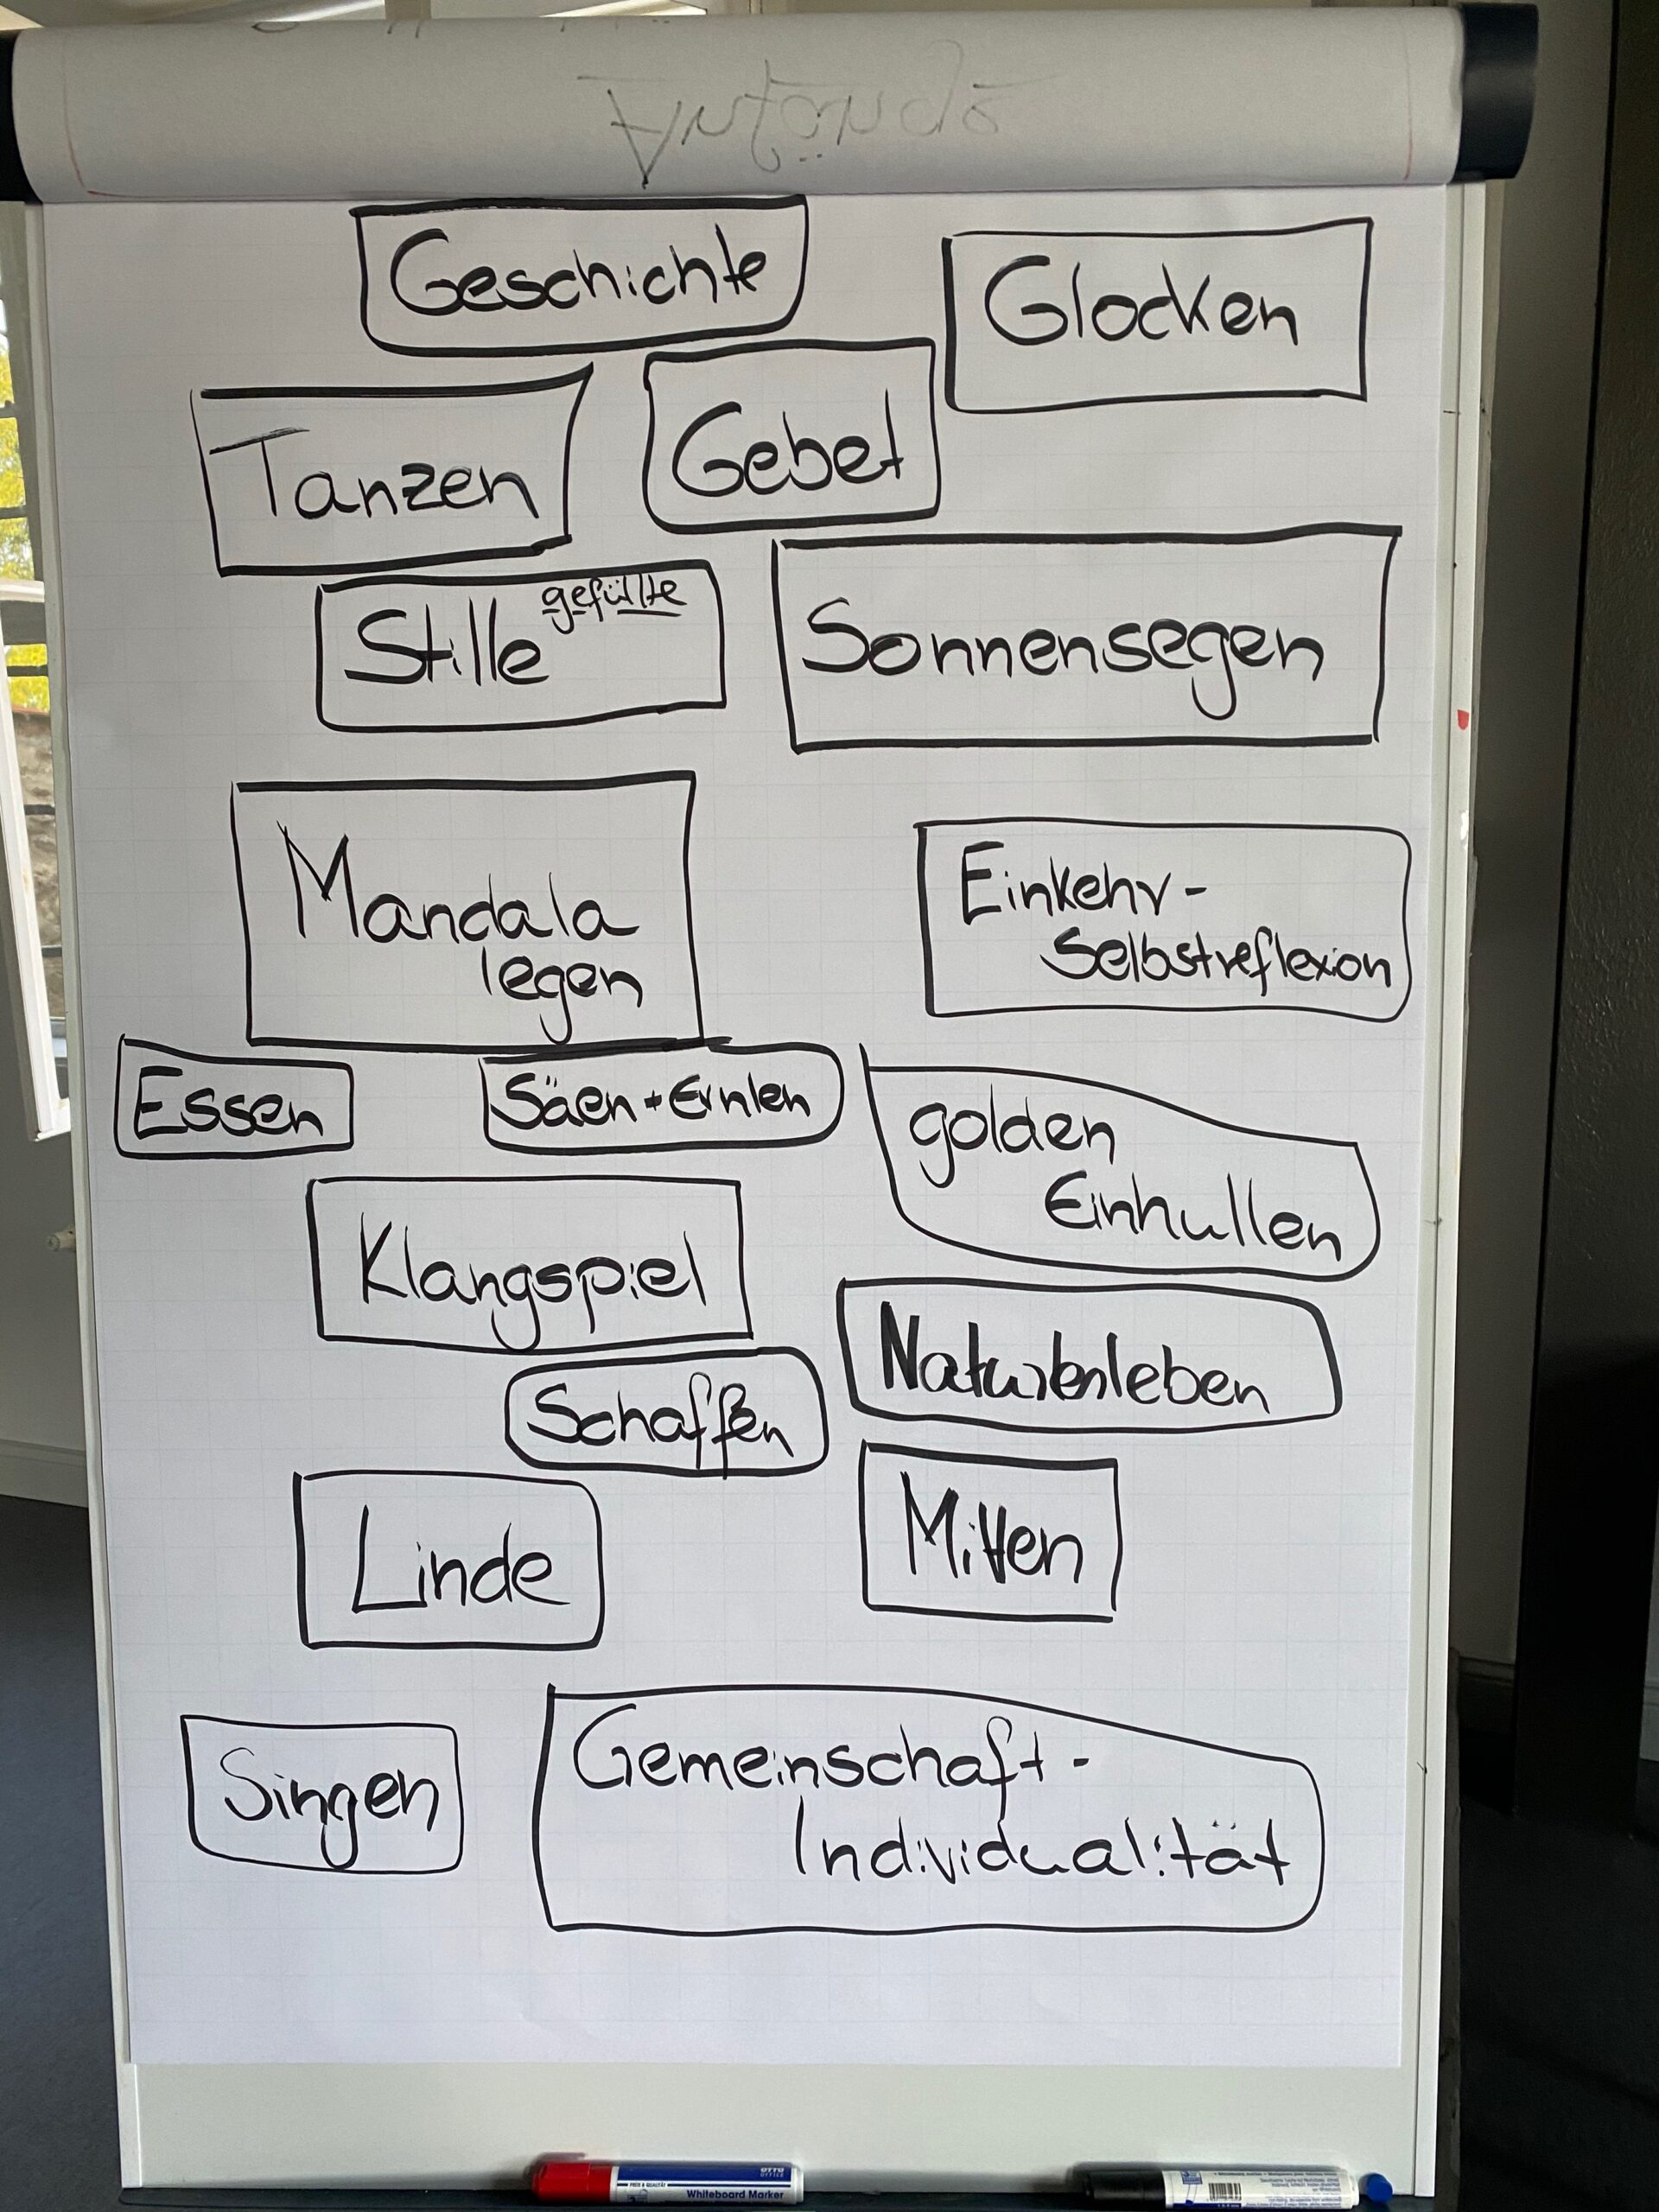 Geschichte
Glocken
Tanzen
Gebet
gefüllte
Stille
Sonnensegen
Mandala
legen
Einkehr-
Selbstreflexion
Essen
Säen + Ernten
golden
Einhullen
Klangspiel
Naturerleben
Schaffen
Linde
Mitten
Singen
Gemeinschaft-
Individualität
OTTO
OFFICE
Whiteboard Marker